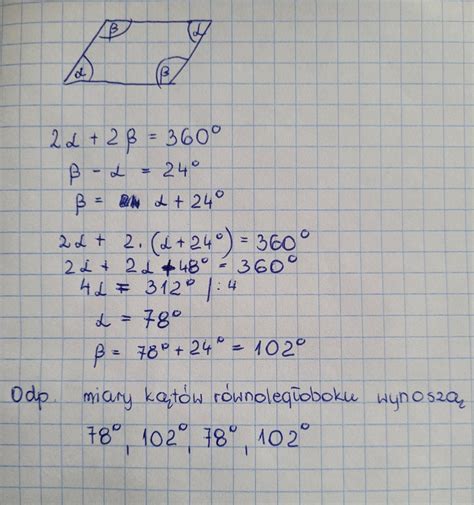 β α
α β
2α + 2β = 360°
β - α = 24°
β = α + 24°
2α + 2 · (α + 24°) = 360°
2α + 2α + 48° = 360°
4α = 312° |:4
α = 78°
β = 78° + 24° = 102°
Odp. miary kątów równoległoboku wynoszą
78°, 102°, 78°, 102°